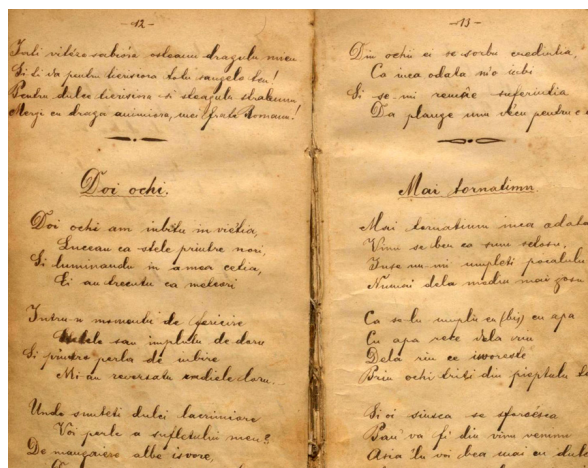 -12-
Ti va pentru tierisiora totu sangele teu!
Pentru dulce tierisiora si steagulu strabunu
Mergi cu draga animiora, mei frate Romanu!
Doi ochi.
Doi ochi am iubitu in viétia,
Luceau ca stele printre nori,
Si luminandu in a mea cétia,
Ei au trecutu ca meteori
Intru'n momentu de fericire
sau implutu de doru
Si printre perla de iubire
Mi au reversatu
Unde sunteti dulci lacrimiore
Voi perle a sufletului meu?
De mangaiere albe isvore,
-13-
Din ochii ei se sorbu credintia,
Ca mea odata m'o iubi
Si se-mi remâe suferintia
Da plange una vécu pentru
Mai tornatimu.
Mai tornatimu inca adata
Vinu se beu ca sum setosu,
Inse nu-mi umpleti pocalulu
Numai dela mediu mai josu
Ca se lu umplu eu (bis) cu apa
Cu apa rece dela vin
Dela riu ce isvoreste
Prin ochi tristi din pieptulu
Si oi siusca se sfarsiésca
Pan' va fi din vinu veninu
Asia 'lu voi bea mai cu